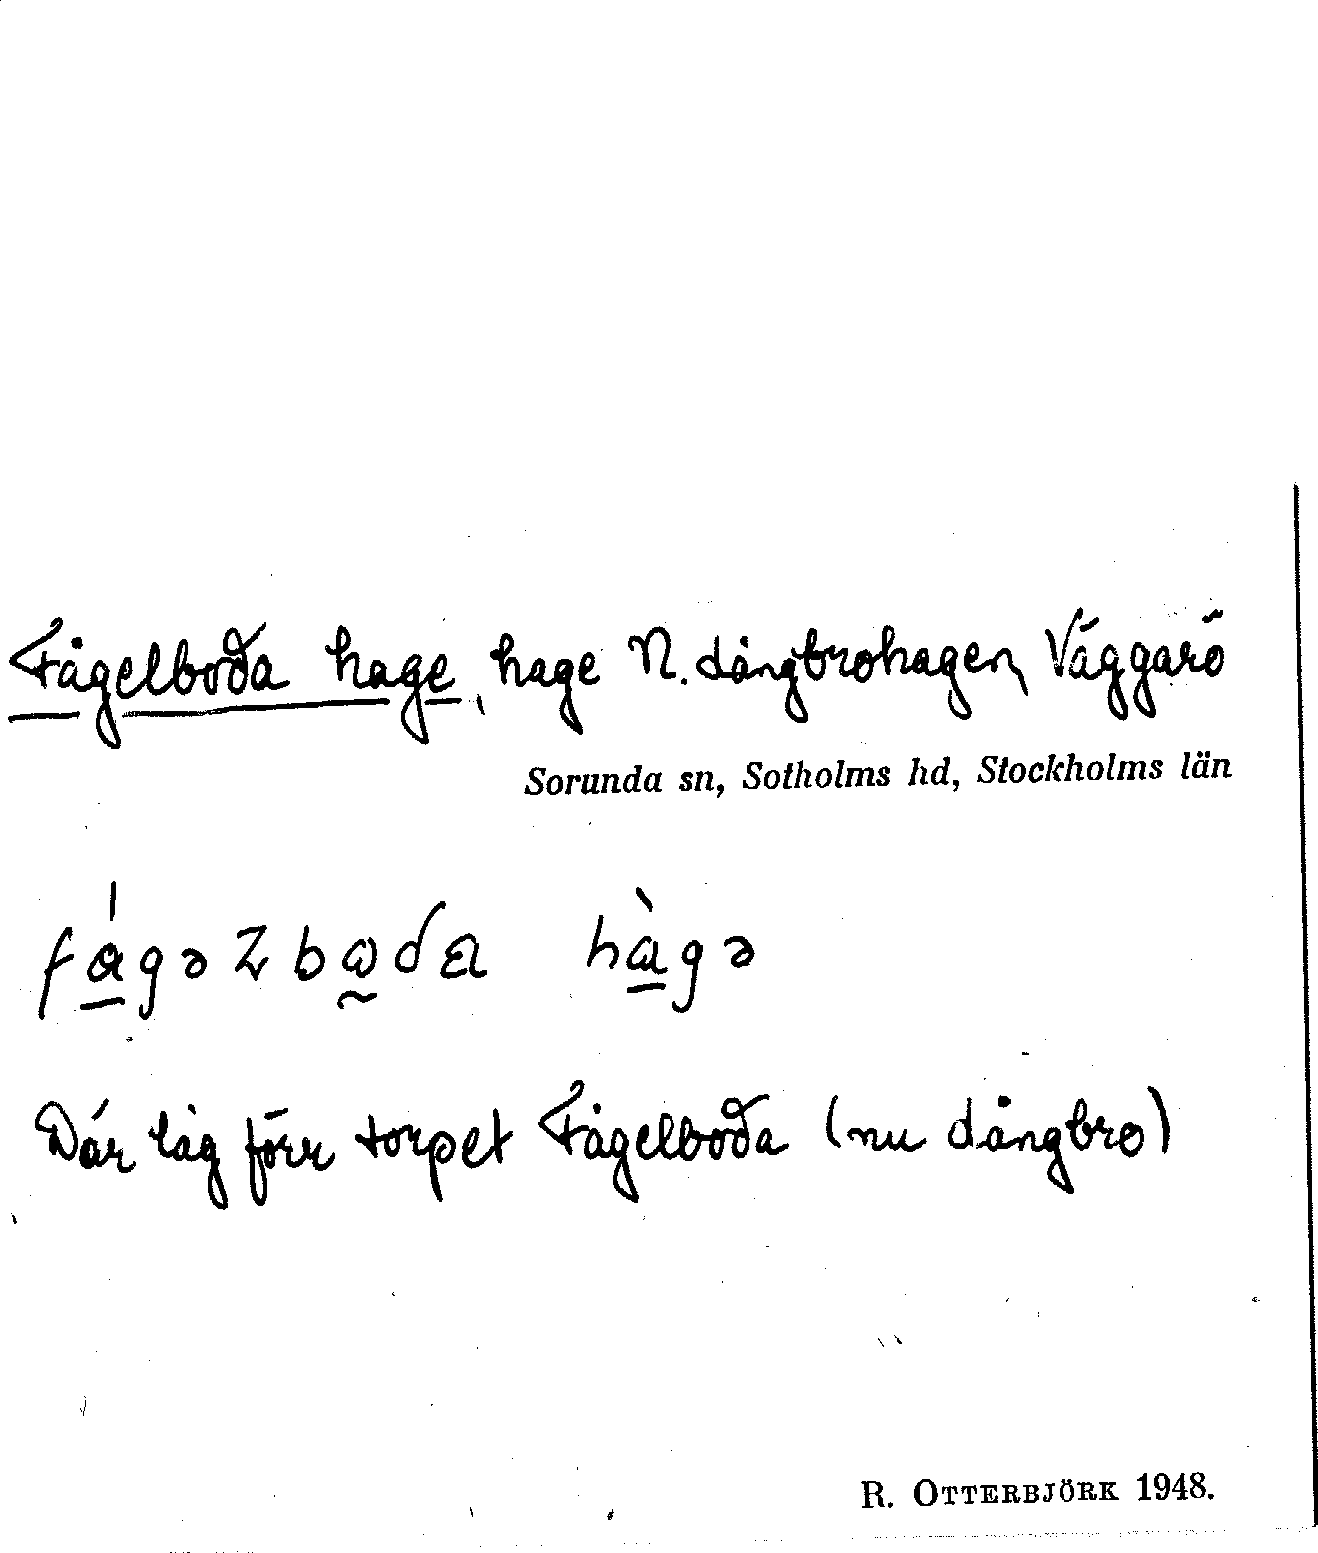 Fågelboda hage, hage N. Långbrohagen, Väggarö
Sorunda sn, Sotholms hd, Stockholms län
Där låg förr torpet Fågelboda (nu Långbro)
R. OTTERBJÖRK 1948.